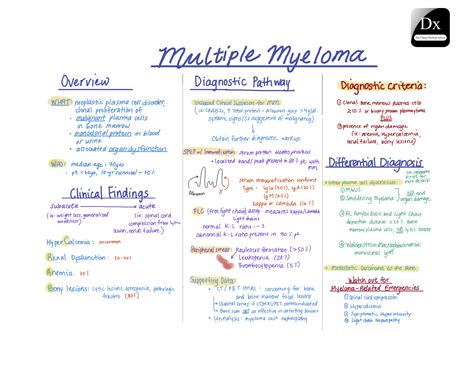 Dx
Multiple Myeloma
Overview
WHAT: neoplastic plasma cell disorder,
clonal proliferation of
malignant plasma cells
in bone marrow
monoclonal protein in blood
or urine
associated organ dysfunction
WHO: median age: 70yr
Clinical Findings
subacute
acute
(ie: weight loss, generalized
weakness)
(ie: spinal cord
compression from lytic
lesion, renal failure)
HyperCalcemia: uncommon
Renal Dysfunction:
Anemia:
Bony lesions: lytic lesions, osteopenia, pathologic
fractures (80%)
Diagnostic Pathway
Increased Clinical Suspicion for MM:
Obtain further diagnostic workup
SPEP w/ Immunofixation: serum protein electrophoresis
localized band/peak present in 80% pt with
mm
serum immunofixation confirms
Kappa or Lambda
FLC (free light chain) assay: measures kappa/lambda
light chains
normal K:L ratio
abnormal K:L ratio present in 90% pt
Peripheral smear: Rouleaux formation (>50%)
Leukopenia (20%)
Thrombocytopenia (5%)
Supporting Data:
CT / PET / MRI: screening for bone
and bone marrow focal lesions
Bone scan not as effective in detecting lesions
Urinalysis: myeloma cast nephropathy
Diagnostic criteria:
① Clonal bone marrow plasma cells
≥10% or biopsy proven plasmacytoma
PLUS
② presence of organ damage
(ie: anemia, hypercalcemia,
renal failure, bony lesions)
Differential Diagnosis
Other plasma cell dyscrasias
① MGUS
② Smoldering myeloma
organ damage
③ AL Amyloidosis and Light Chain
deposition disease: <10% bone
marrow plasma cells, NO lytic lesions
④ Waldenström Macroglobulinemia:
monoclonal IgM
Metastatic carcinoma to the bone
Watch out for
Myeloma-Related Emergencies
① Spinal cord compression
② Hypercalcemia
③ Symptomatic hyperviscosity
④ Light chain nephropathy